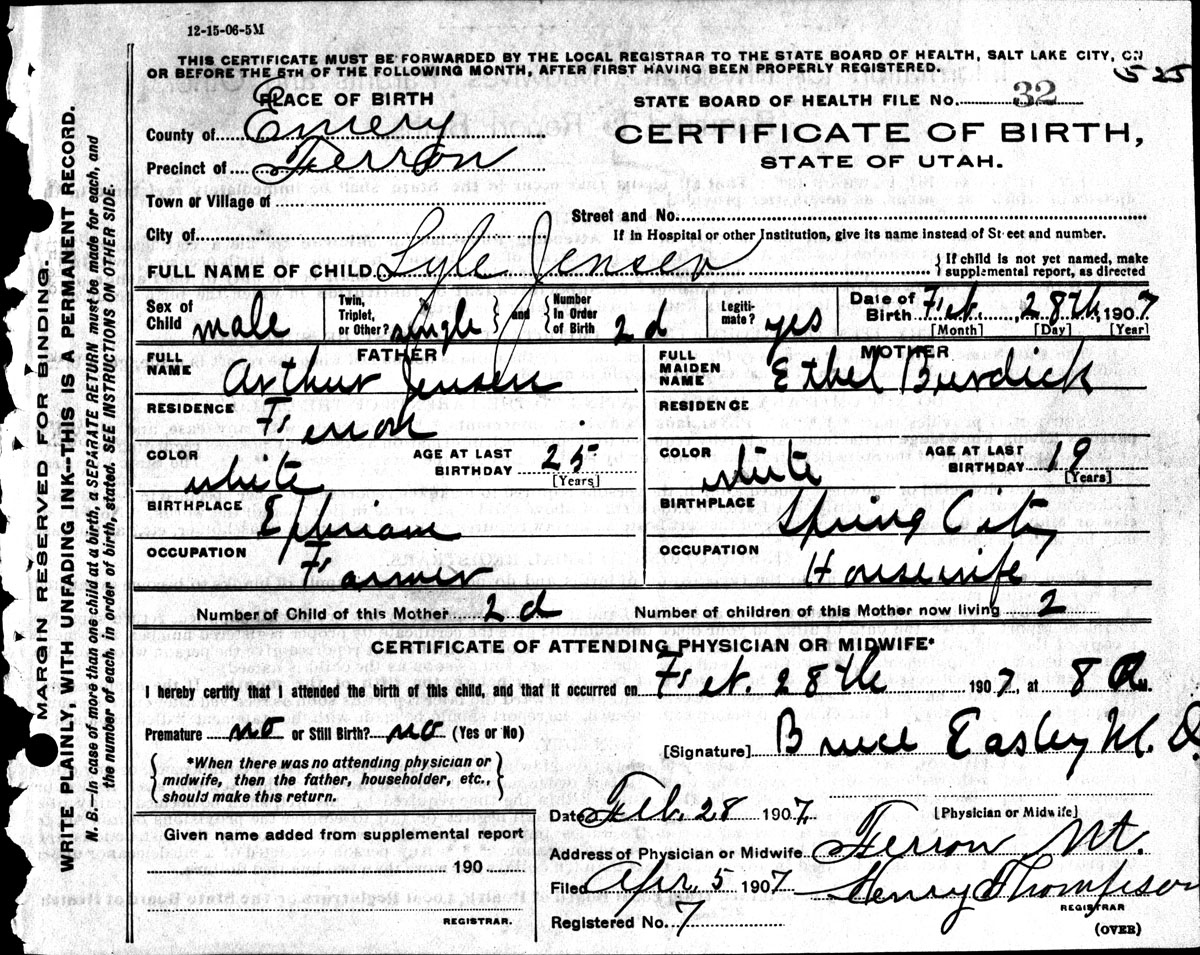 12-15-06-5M
THIS CERTIFICATE MUST BE FORWARDED BY THE LOCAL REGISTRAR TO THE STATE BOARD OF HEALTH, SALT LAKE CITY, ON
OR BEFORE THE 5TH OF THE FOLLOWING MONTH, AFTER FIRST HAVING BEEN PROPERLY REGISTERED.
525
PLACE OF BIRTH
STATE BOARD OF HEALTH FILE NO. 32
County of Emery
CERTIFICATE OF BIRTH,
Precinct of Ferron
STATE OF UTAH.
Town or Village of
Street and No.
City of
If in Hospital or other Institution, give its name instead of Street and number.
FULL NAME OF CHILD Lyle Jensen
{ If child is not yet named, make
supplemental report, as directed
Sex of Child male
Twin, Triplet, or Other? single } and { Number In Order of Birth 2d
Legitimate? yes
Date of Birth Feb. 28th, 1907
[Month] [Day] [Year]
FATHER
FULL NAME Arthur Jensen
RESIDENCE
Ferron
COLOR white
AGE AT LAST BIRTHDAY 25
[Years]
BIRTHPLACE Ephriam
OCCUPATION Farmer
MOTHER
FULL MAIDEN NAME Ethel Burdick
RESIDENCE
COLOR white
AGE AT LAST BIRTHDAY 19
[Years]
BIRTHPLACE Spring City
OCCUPATION Housewife
Number of Child of this Mother 2d Number of children of this Mother now living 2
CERTIFICATE OF ATTENDING PHYSICIAN OR MIDWIFE*
I hereby certify that I attended the birth of this child, and that it occurred on Feb. 28th 1907, at 8 A M.
Premature no or Still Birth? no (Yes or No)
[Signature] Bruce Easley M.D.
{ *When there was no attending physician or
midwife, then the father, householder, etc.,
should make this return. }
[Physician or Midwife]
Date Feb. 28 1907.
Given name added from supplemental report
190
REGISTRAR.
Address of Physician or Midwife Ferron Ut.
Filed Apr. 5 1907 Henry Thompson
REGISTRAR
Registered No. 7
(OVER)
MARGIN RESERVED FOR BINDING.
WRITE PLAINLY, WITH UNFADING INK--THIS IS A PERMANENT RECORD.
N. B.—In case of more than one child at a birth, a SEPARATE RETURN must be made for each, and
the number of each, in order of birth, stated. SEE INSTRUCTIONS ON OTHER SIDE.